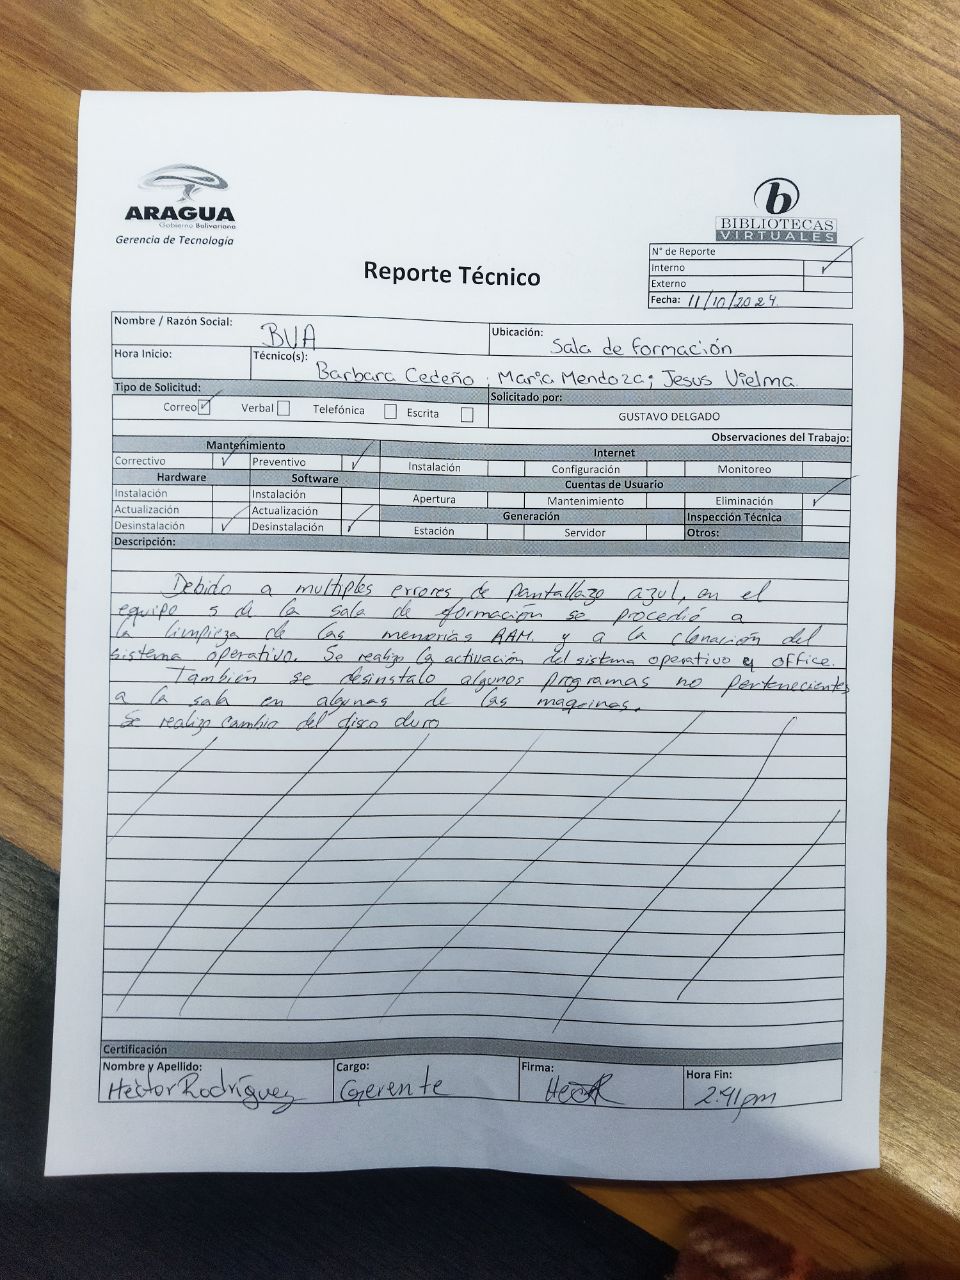 ARAGUA
Gobierno Bolivariano
Gerencia de Tecnología
b
BIBLIOTECAS
VIRTUALES
Reporte Técnico
N° de Reporte
Interno ✓
Externo
Fecha: 11/10/2024
Nombre / Razón Social: BVA
Ubicación: Sala de formación
Hora Inicio:
Técnico(s): Barbara Cedeño, Maria Mendoza; Jesus Vielma
Tipo de Solicitud:
Correo ✓ Verbal Telefónica Escrita
Solicitado por:
GUSTAVO DELGADO
Observaciones del Trabajo:
Mantenimiento Internet
Correctivo ✓ Preventivo ✓ Instalación Configuración Monitoreo
Hardware Software Cuentas de Usuario
Instalación Instalación Apertura Mantenimiento Eliminación ✓
Actualización Actualización Generación Inspección Técnica
Desinstalación ✓ Desinstalación ✓ Estación Servidor Otros:
Descripción:
Debido a multiples errores de pantallazo azul, en el
equipo 5 de la sala de formación se procedió a
la limpieza de las memorias RAM. y a la clonación del
sistema operativo. Se realizo la activación del sistema operativo y office.
También se desinstalo algunos programas no pertenecientes
a la sala en algunas de las maquinas.
Se realizo cambio del disco duro
Certificación
Nombre y Apellido: Héctor Rodríguez
Cargo: Gerente
Firma:
Hora Fin: 2:41pm